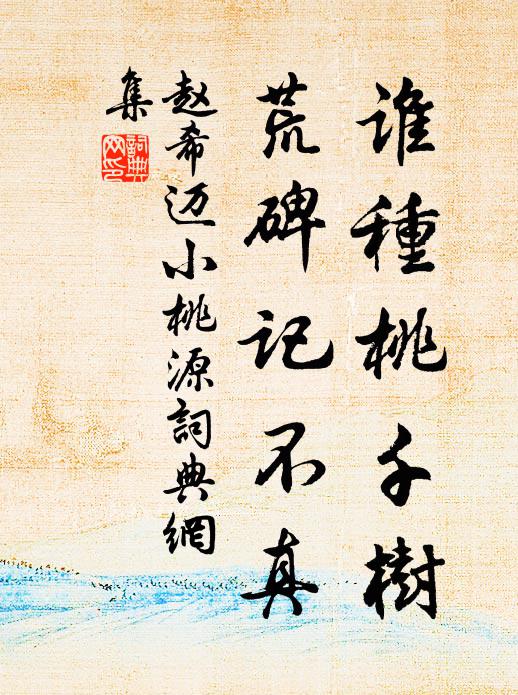 誰種桃千樹
荒碑记不真
赵希迈小桃源詞典網
集
詞典網印